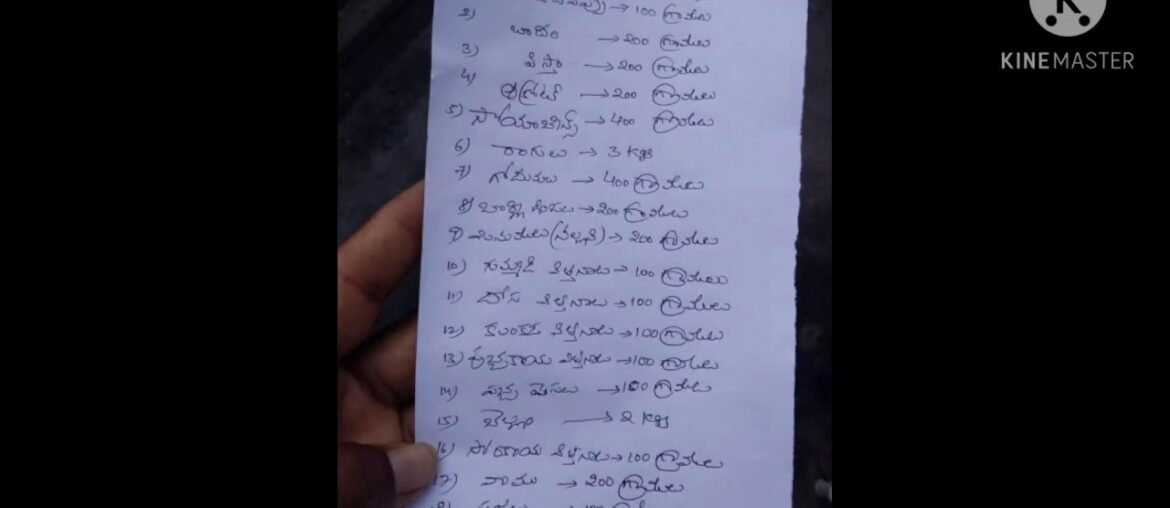 → 100 గ్రాములు
2) బాదం → 200 గ్రాములు
3) పిస్తా → 200 గ్రాములు
4) → 200 గ్రాములు
5) సోయాబీన్స్ → 400 గ్రాములు
6) రాగులు → 3 kgs
7) గోదుమలు → 400 గ్రాములు
8) బార్లి గింజలు → 200 గ్రాములు
9) మినుములు (నల్లవి) → 200 గ్రాములు
10) గుమ్మడి విత్తనాలు → 100 గ్రాములు
11) దోస విత్తనాలు → 100 గ్రాములు
12) విత్తనాలు → 100 గ్రాములు
13) పుచ్చకాయ విత్తనాలు → 100 గ్రాములు
14) పచ్చ పెసలు → 100 గ్రాములు
15) బెల్లం → 2 kgs
16) సోరకాయ విత్తనాలు → 100 గ్రాములు
17) వాము → 200 గ్రాములు
K
KINEMASTER